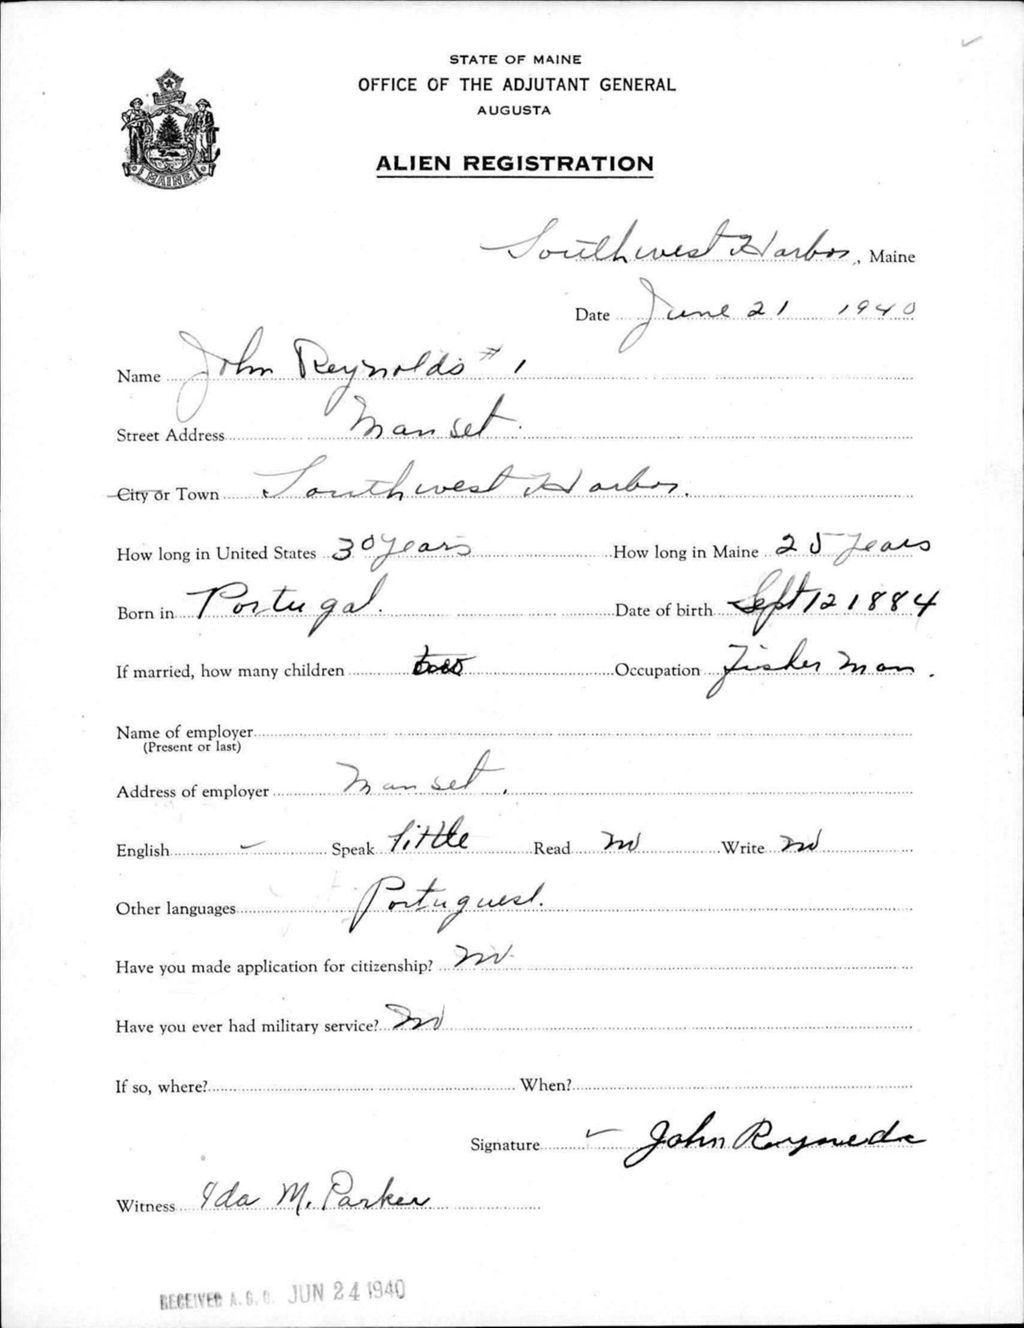 STATE OF MAINE
OFFICE OF THE ADJUTANT GENERAL
AUGUSTA
ALIEN REGISTRATION
MAINE
Southwest Harbor, Maine
Date June 21 1940
Name John Reynolds #1
Street Address Manset.
City or Town Southwest Harbor.
How long in United States 30 years How long in Maine 25 years
Born in Portugal. Date of birth Sept 12 1884
If married, how many children two Occupation Fisher man.
Name of employer
(Present or last)
Address of employer Manset.
English Speak little Read no Write no
Other languages Portuguese.
Have you made application for citizenship? no.
Have you ever had military service? no
If so, where? When?
Signature John
Witness Ida M. Parker
RECEIVED A.G.O. JUN 24 1940